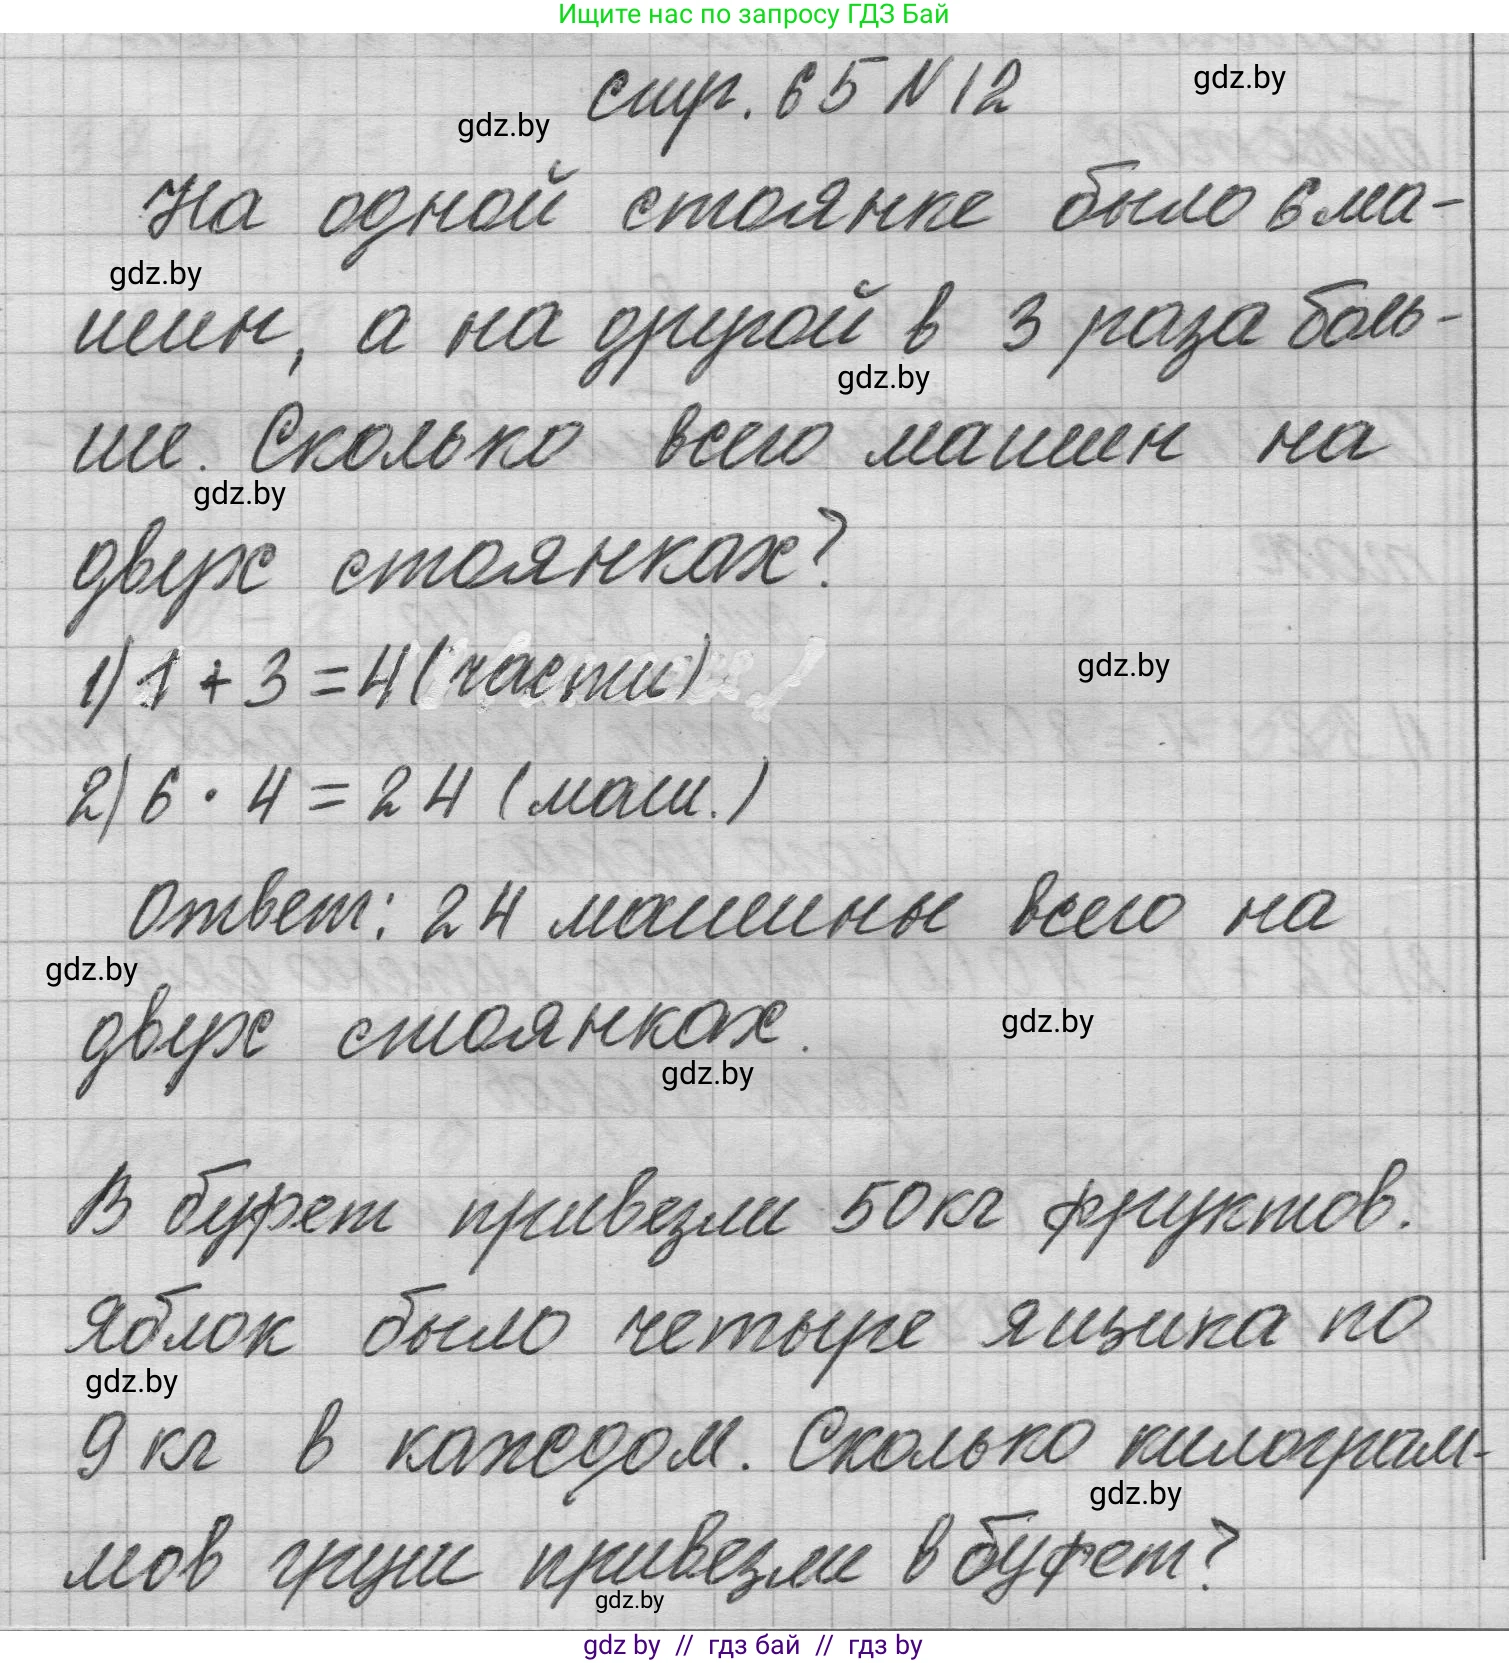 Ищите нас по запросу ГДЗ Бай
стр. 65 N 12
gdz.by
gdz.by
На одной стоянке было 6 ма-
gdz.by
шин, а на другой в 3 раза боль-
gdz.by
ше. Сколько всего машин на
gdz.by
двух стоянках?
1) 1 + 3 = 4 (части)
gdz.by
2) 6 · 4 = 24 (маш.)
Ответ: 24 машины всего на
gdz.by
двух стоянках.
gdz.by
gdz.by
В буфет привезли 50 кг фруктов.
Яблок было четыре ящика по
gdz.by
9 кг в каждом. Сколько килограм-
gdz.by
мов груш привезли в буфет?
gdz.by
gdz by // гдз бай // гдз by